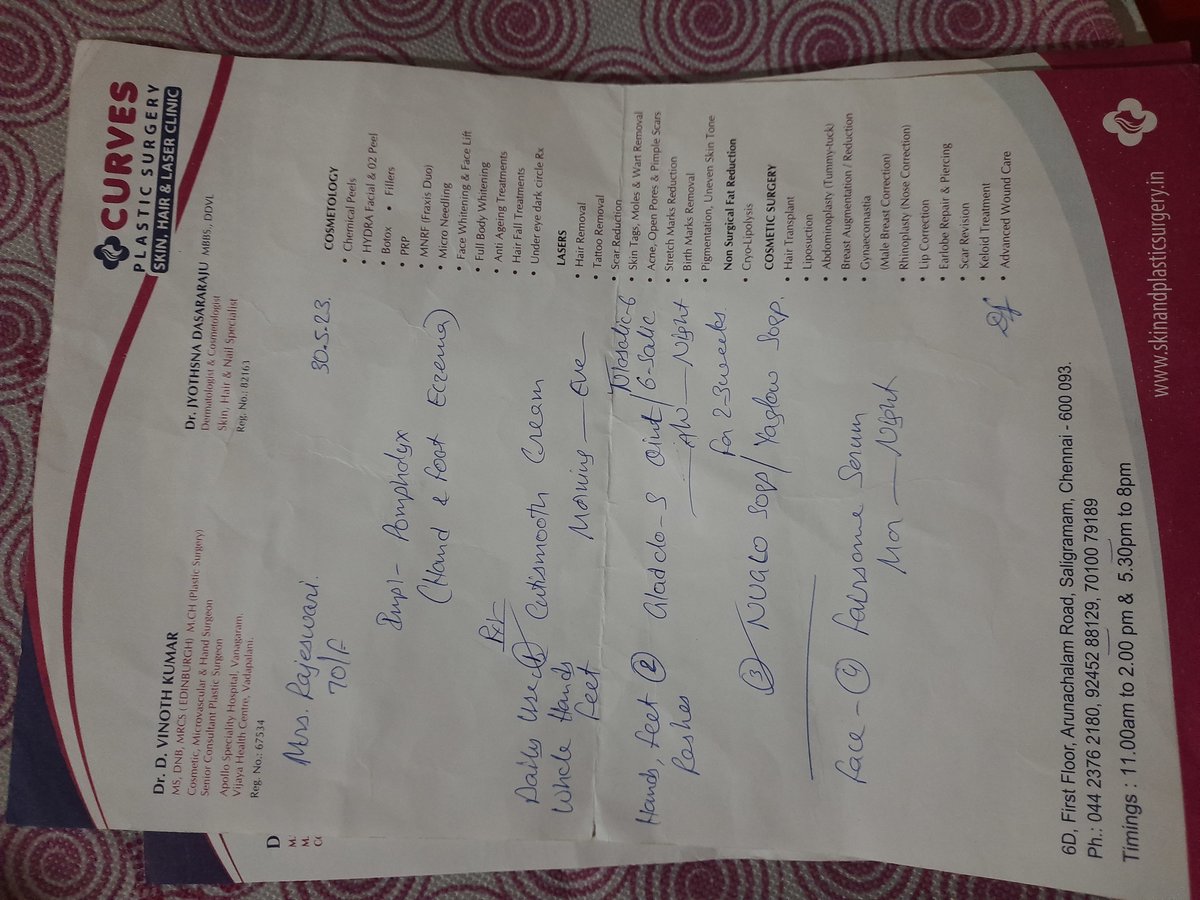 Dr. D. VINOTH KUMAR
MS, DNB, MRCS ( EDINBURGH) M.CH (Plastic Surgery)
Cosmetic, Microvascular & Hand Surgeon
Senior Consultant Plastic Surgeon
Apollo Speciality Hospital, Vanagaram
Vijaya Health Centre, Vadapalani.
Reg. No.: 67534
Dr. JYOTHSNA DASARARAJU MBBS., DDVL
Dermatologist & Cosmetologist
Skin, Hair & Nail Specialist
Reg. No.: 82163
CURVES
PLASTIC SURGERY
SKIN, HAIR & LASER CLINIC
Mrs. Rajeswari.
70/F
30.5.23.
Imp:- Pompholyx
(Hand & Foot Eczema)
Daily Use ① Cutismooth Cream
Whole Hands
Feet
Morning — Eve
Hands, Feet ②
Rashes
S Oint / 6-Salic
Night
for 2-3 weeks
③ Soap / Soap.
Face - ④ Serum
Mor — Night
COSMETOLOGY
• Chemical Peels
• HYDRA Facial & 02 Peel
• Botox • Fillers
• PRP
• MNRF (Fraxis Duo)
• Micro Needling
• Face Whitening & Face Lift
• Full Body Whitening
• Anti Ageing Treatments
• Hair Fall Treatments
• Under eye dark circle Rx
LASERS
• Hair Removal
• Tattoo Removal
• Scar Reduction
• Skin Tags, Moles & Wart Removal
• Acne, Open Pores & Pimple Scars
• Stretch Marks Reduction
• Birth Marks Removal
• Pigmentation, Uneven Skin Tone
Non Surgical Fat Reduction
• Cryo-Lipolysis
COSMETIC SURGERY
• Hair Transplant
• Liposuction
• Abdominoplasty (Tummy-tuck)
• Breast Augmentation / Reduction
• Gynaecomastia
(Male Breast Correction)
• Rhinoplasty (Nose Correction)
• Lip Correction
• Earlobe Repair & Piercing
• Scar Revision
• Keloid Treatment
• Advanced Wound Care
6D, First Floor, Arunachalam Road, Saligramam, Chennai - 600 093.
Ph.: 044 2376 2180, 92452 88129, 70100 79189
Timings : 11.00am to 2.00 pm & 5.30pm to 8pm
www.skinandplasticsurgery.in